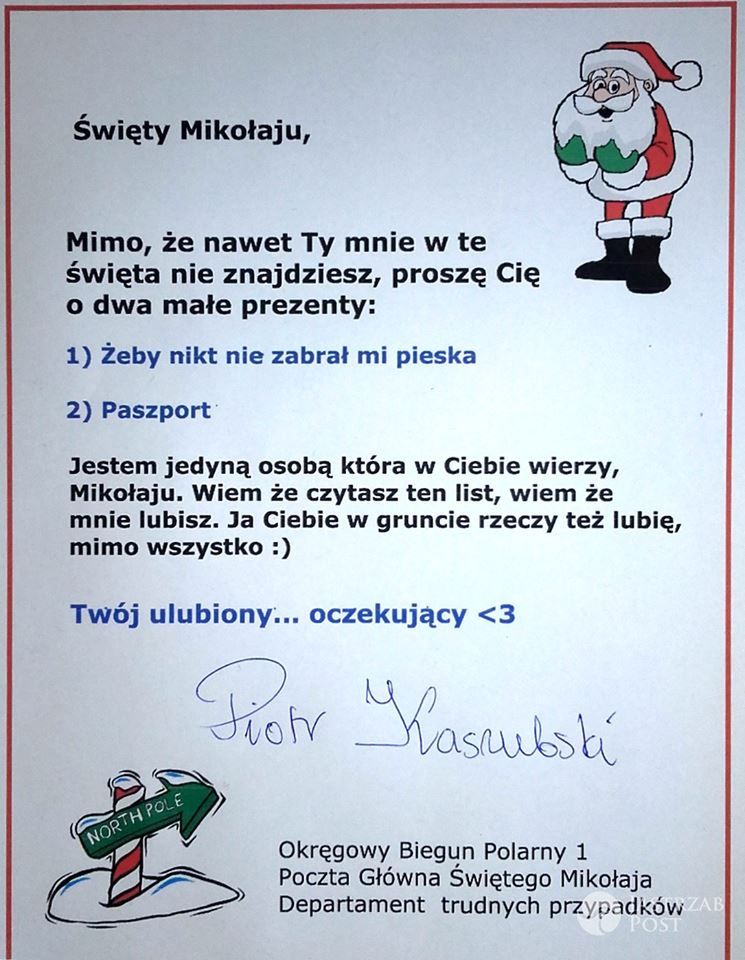 Święty Mikołaju,
Mimo, że nawet Ty mnie w te
święta nie znajdziesz, proszę Cię
o dwa małe prezenty:
1) Żeby nikt nie zabrał mi pieska
2) Paszport
Jestem jedyną osobą która w Ciebie wierzy,
Mikołaju. Wiem że czytasz ten list, wiem że
mnie lubisz. Ja Ciebie w gruncie rzeczy też lubię,
mimo wszystko :)
Twój ulubiony... oczekujący <3
Piotr Kaszubski
NORTH POLE
Okręgowy Biegun Polarny 1
Poczta Główna Świętego Mikołaja
Departament trudnych przypadków
JASTRZĄB
POST